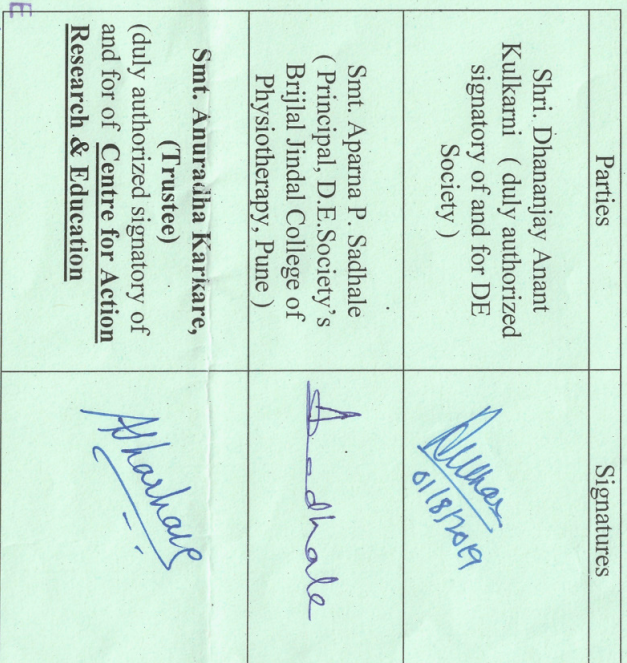 Parties
Signatures
Shri. Dhananjay Anant
Kulkarni ( duly authorized
signatory of and for DE
Society )
01/8/2019
Smt. Aparna P. Sadhale
( Principal, D.E.Society's
Brijlal Jindal College of
Physiotherapy, Pune )
Sadhale
Smt. Anuradha Karkare,
(Trustee)
(duly authorized signatory of
and for of Centre for Action
Research & Education